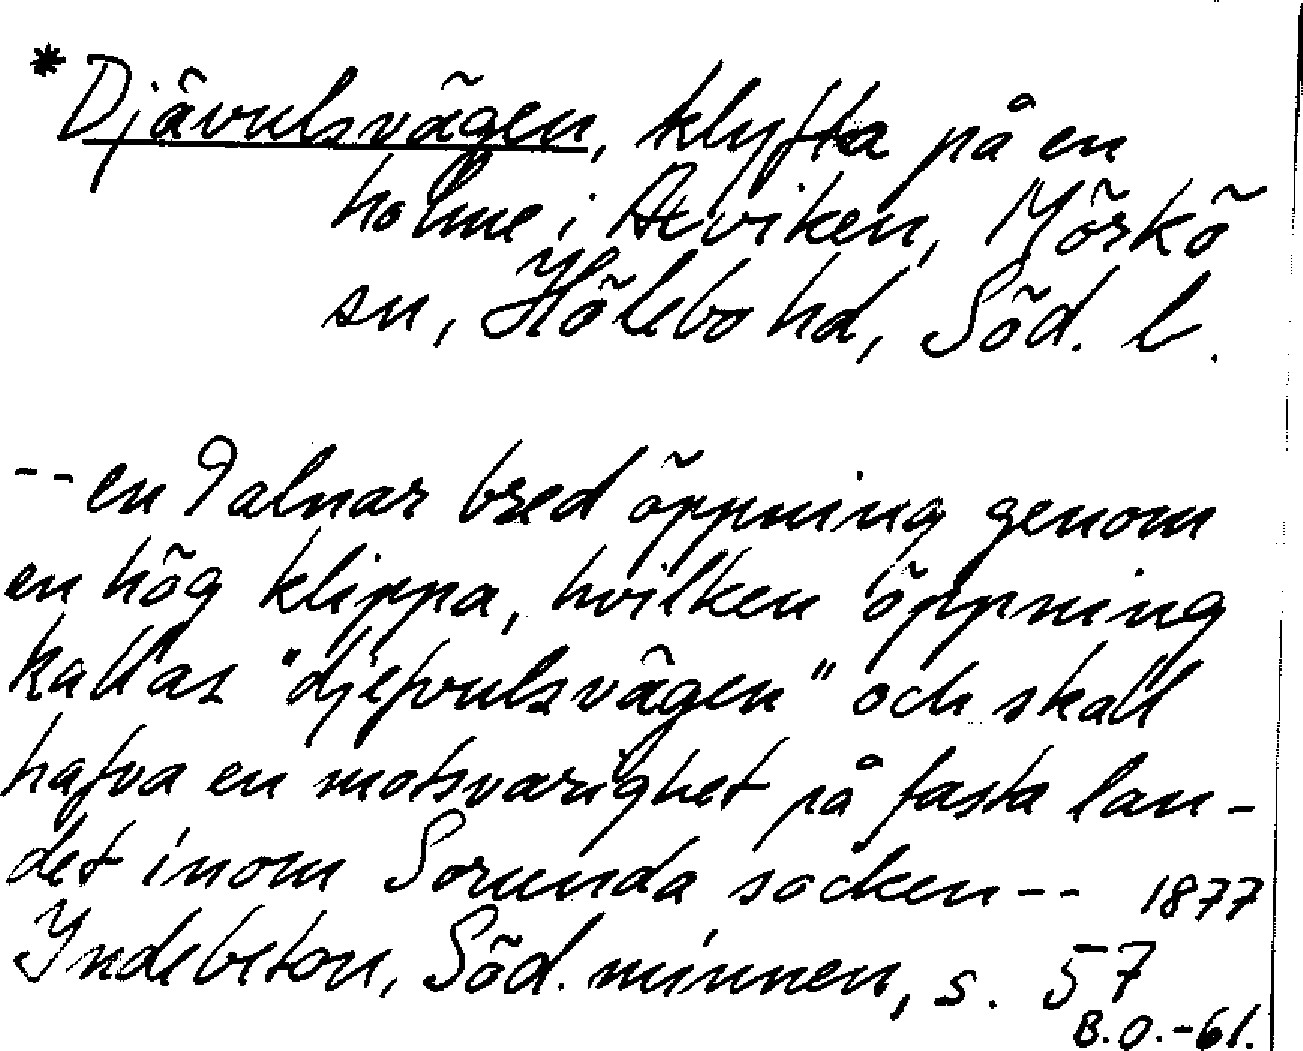 *Djävulsvägen, klyfta på en
holme i Axviken, Mörkö
sn, Hölebo hd, Söd. l.
-- en 9 alnar bred öppning genom
en hög klippa, hvilken öppning
kallas "djefvulsvägen" och skall
hafva en motsvarighet på fasta lan-
det inom Sorunda socken -- 1877
Indebetou, Söd. minnen, s. 57
B.O.-61.